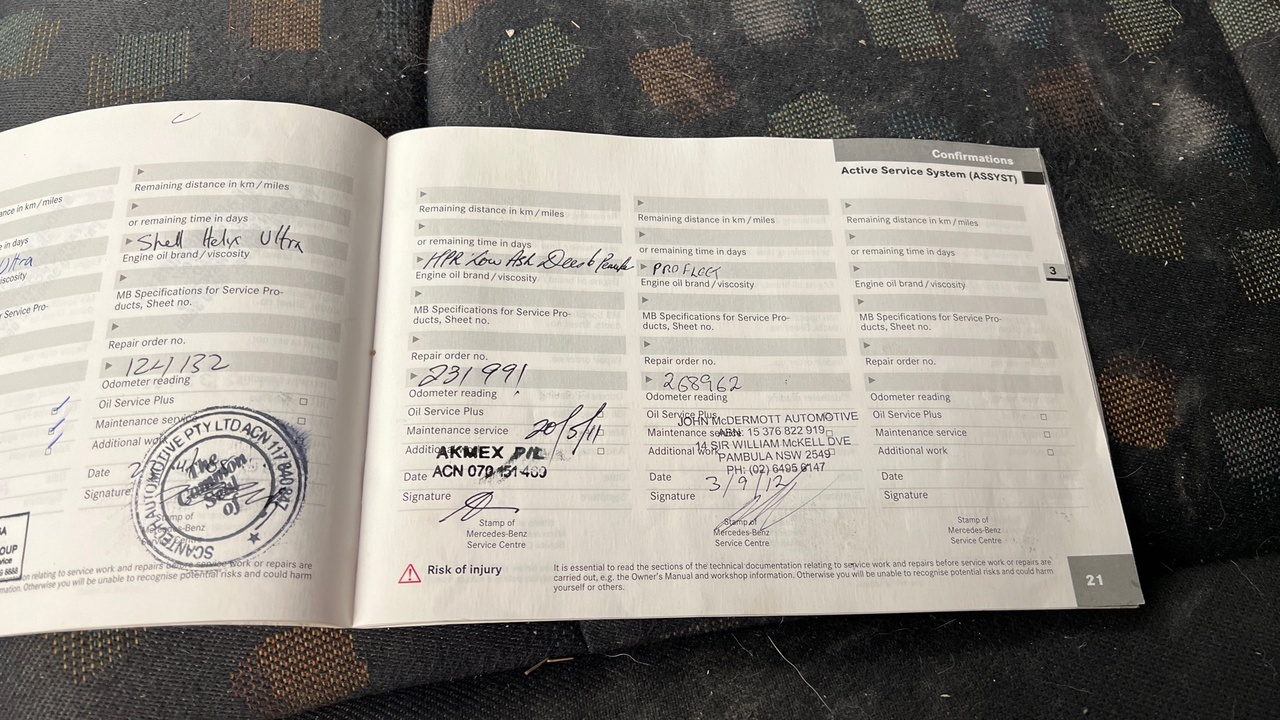 Confirmations
Active Service System (ASSYST)
3
nce in km/miles
in days
Ultra
iscosity
Service Pro-
Remaining distance in km/miles
or remaining time in days
Shell Helix Ultra
Engine oil brand/viscosity
MB Specifications for Service Pro-
ducts, Sheet no.
Repair order no.
Odometer reading
Oil Service Plus
Maintenance servic
Additional work
Date
Signature
SCANTEK AUTOMOTIVE PTY LTD ACN 117 840 887
The
Common
Seal
of
Stamp of
Mercedes-Benz
on relating to service work and repairs before service work or repairs are
mation. Otherwise you will be unable to recognise potential risks and could harm
Remaining distance in km/miles
or remaining time in days
HPR Low Ash
Engine oil brand/viscosity
MB Specifications for Service Pro-
ducts, Sheet no.
Repair order no.
231991
Odometer reading
Oil Service Plus
Maintenance service
20/5/11
Additional
AKMEX P/L
Date ACN 070 151 469
Signature
Stamp of
Mercedes-Benz
Service Centre
Remaining distance in km/miles
or remaining time in days
PROFLEET
Engine oil brand/viscosity
MB Specifications for Service Pro-
ducts, Sheet no.
Repair order no.
268962
Odometer reading
Oil Service Plus
JOHN McDERMOTT AUTOMOTIVE
Maintenance service
ABN: 15 376 822 919
Additional work
14 SIR WILLIAM McKELL DVE
PAMBULA NSW 2549
PH: (02) 6495 6147
Date
3/9/12
Signature
Stamp of
Mercedes-Benz
Service Centre
Remaining distance in km/miles
or remaining time in days
Engine oil brand/viscosity
MB Specifications for Service Pro-
ducts, Sheet no.
Repair order no.
Odometer reading
Oil Service Plus
Maintenance service
Additional work
Date
Signature
Stamp of
Mercedes-Benz
Service Centre
Risk of injury
It is essential to read the sections of the technical documentation relating to service work and repairs before service work or repairs are
carried out, e.g. the Owner's Manual and workshop information. Otherwise you will be unable to recognise potential risks and could harm
yourself or others.
21